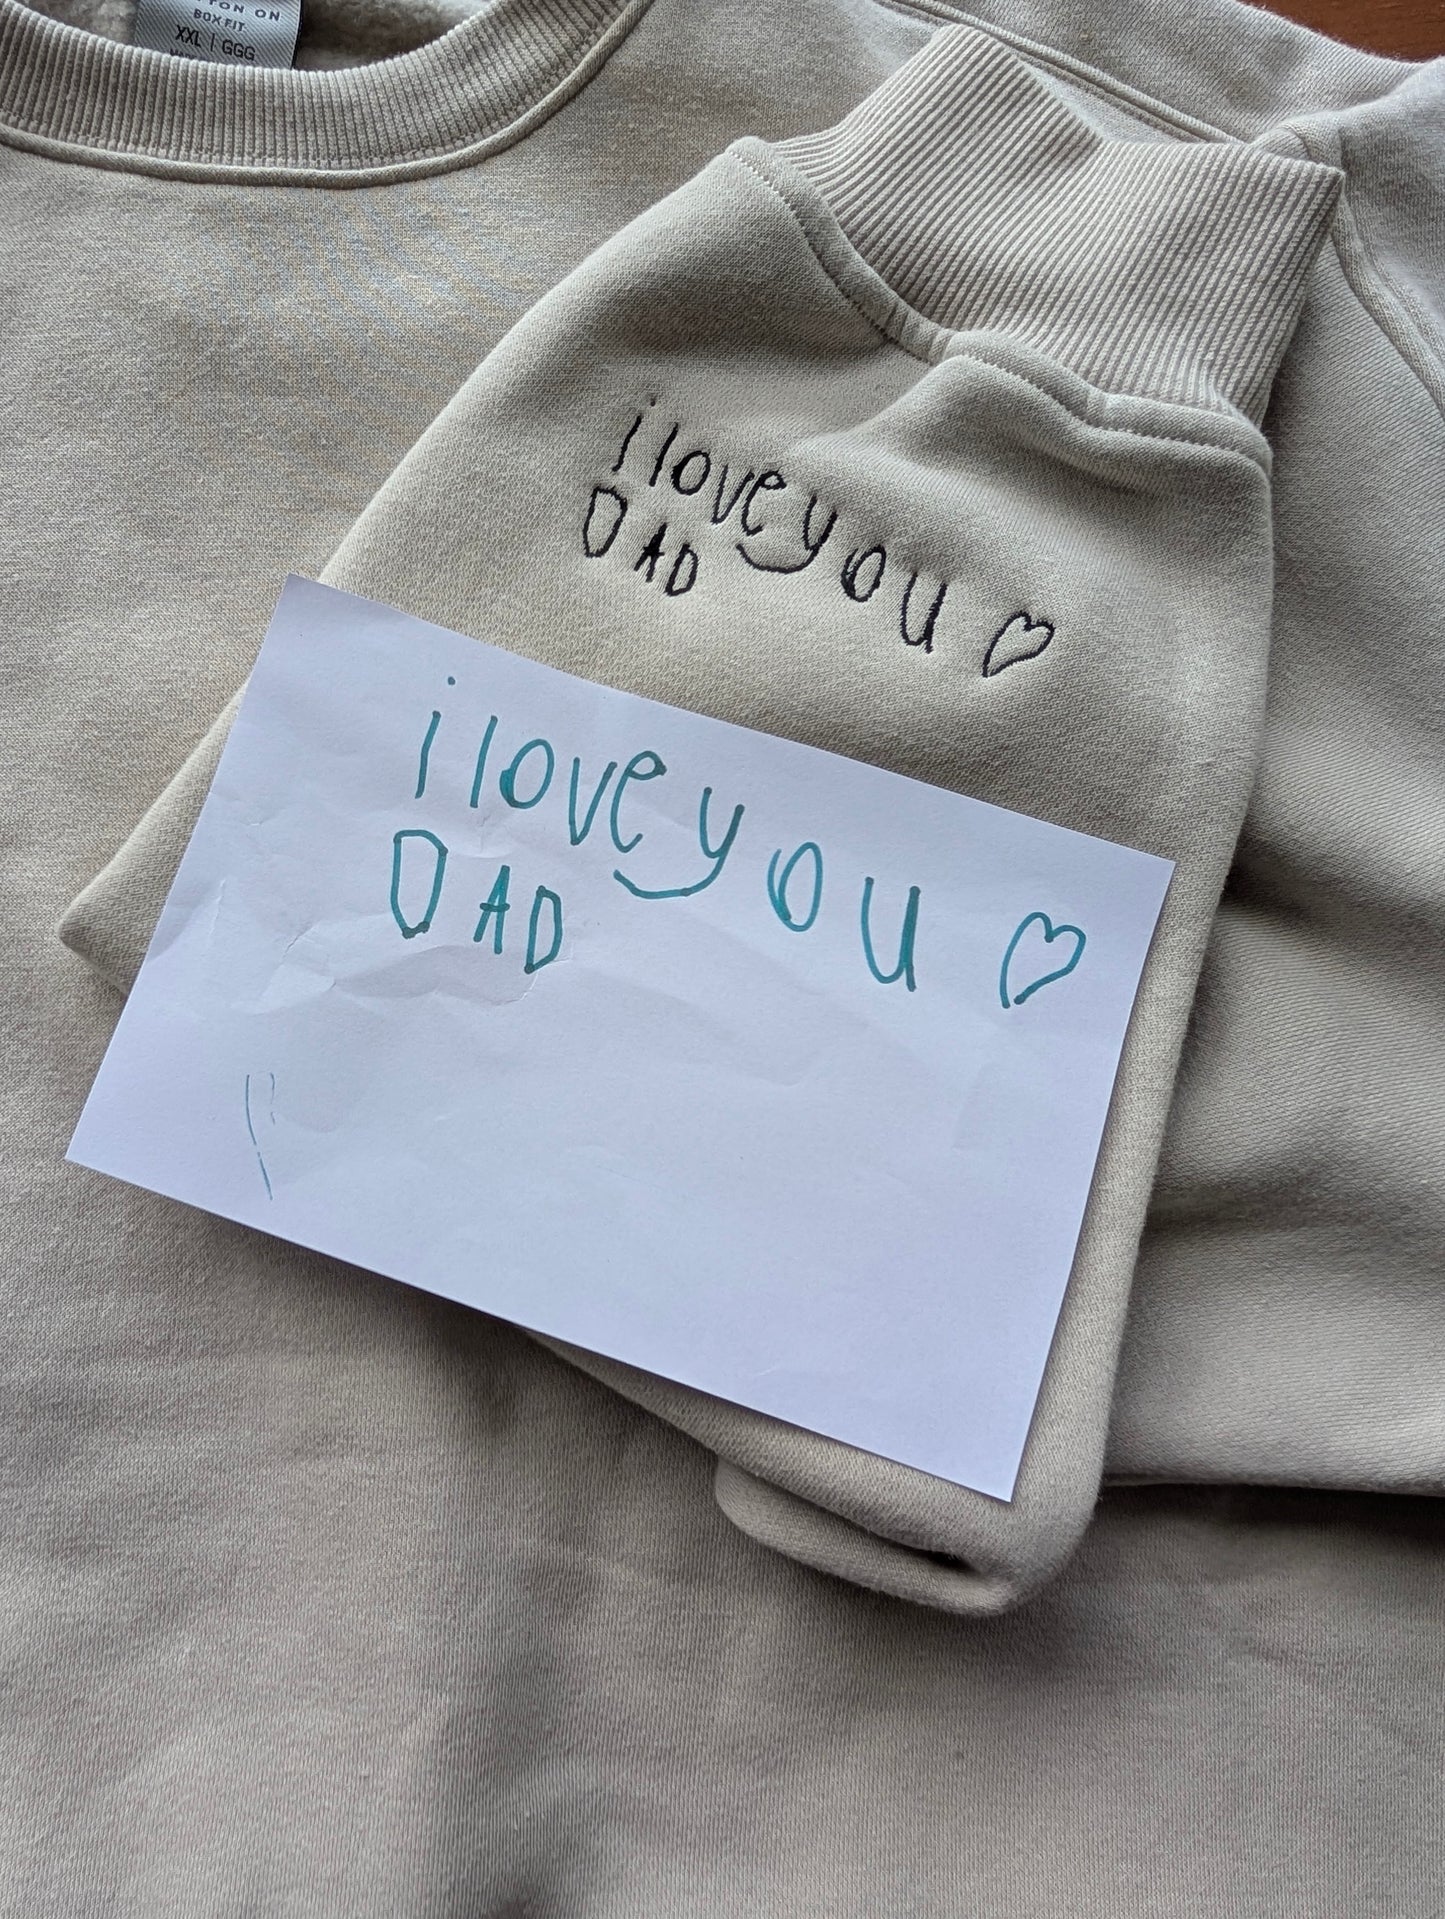 TON ON
BOX FIT
XXL | GGG
i love you ♡
DAD
i love you ♡
DAD